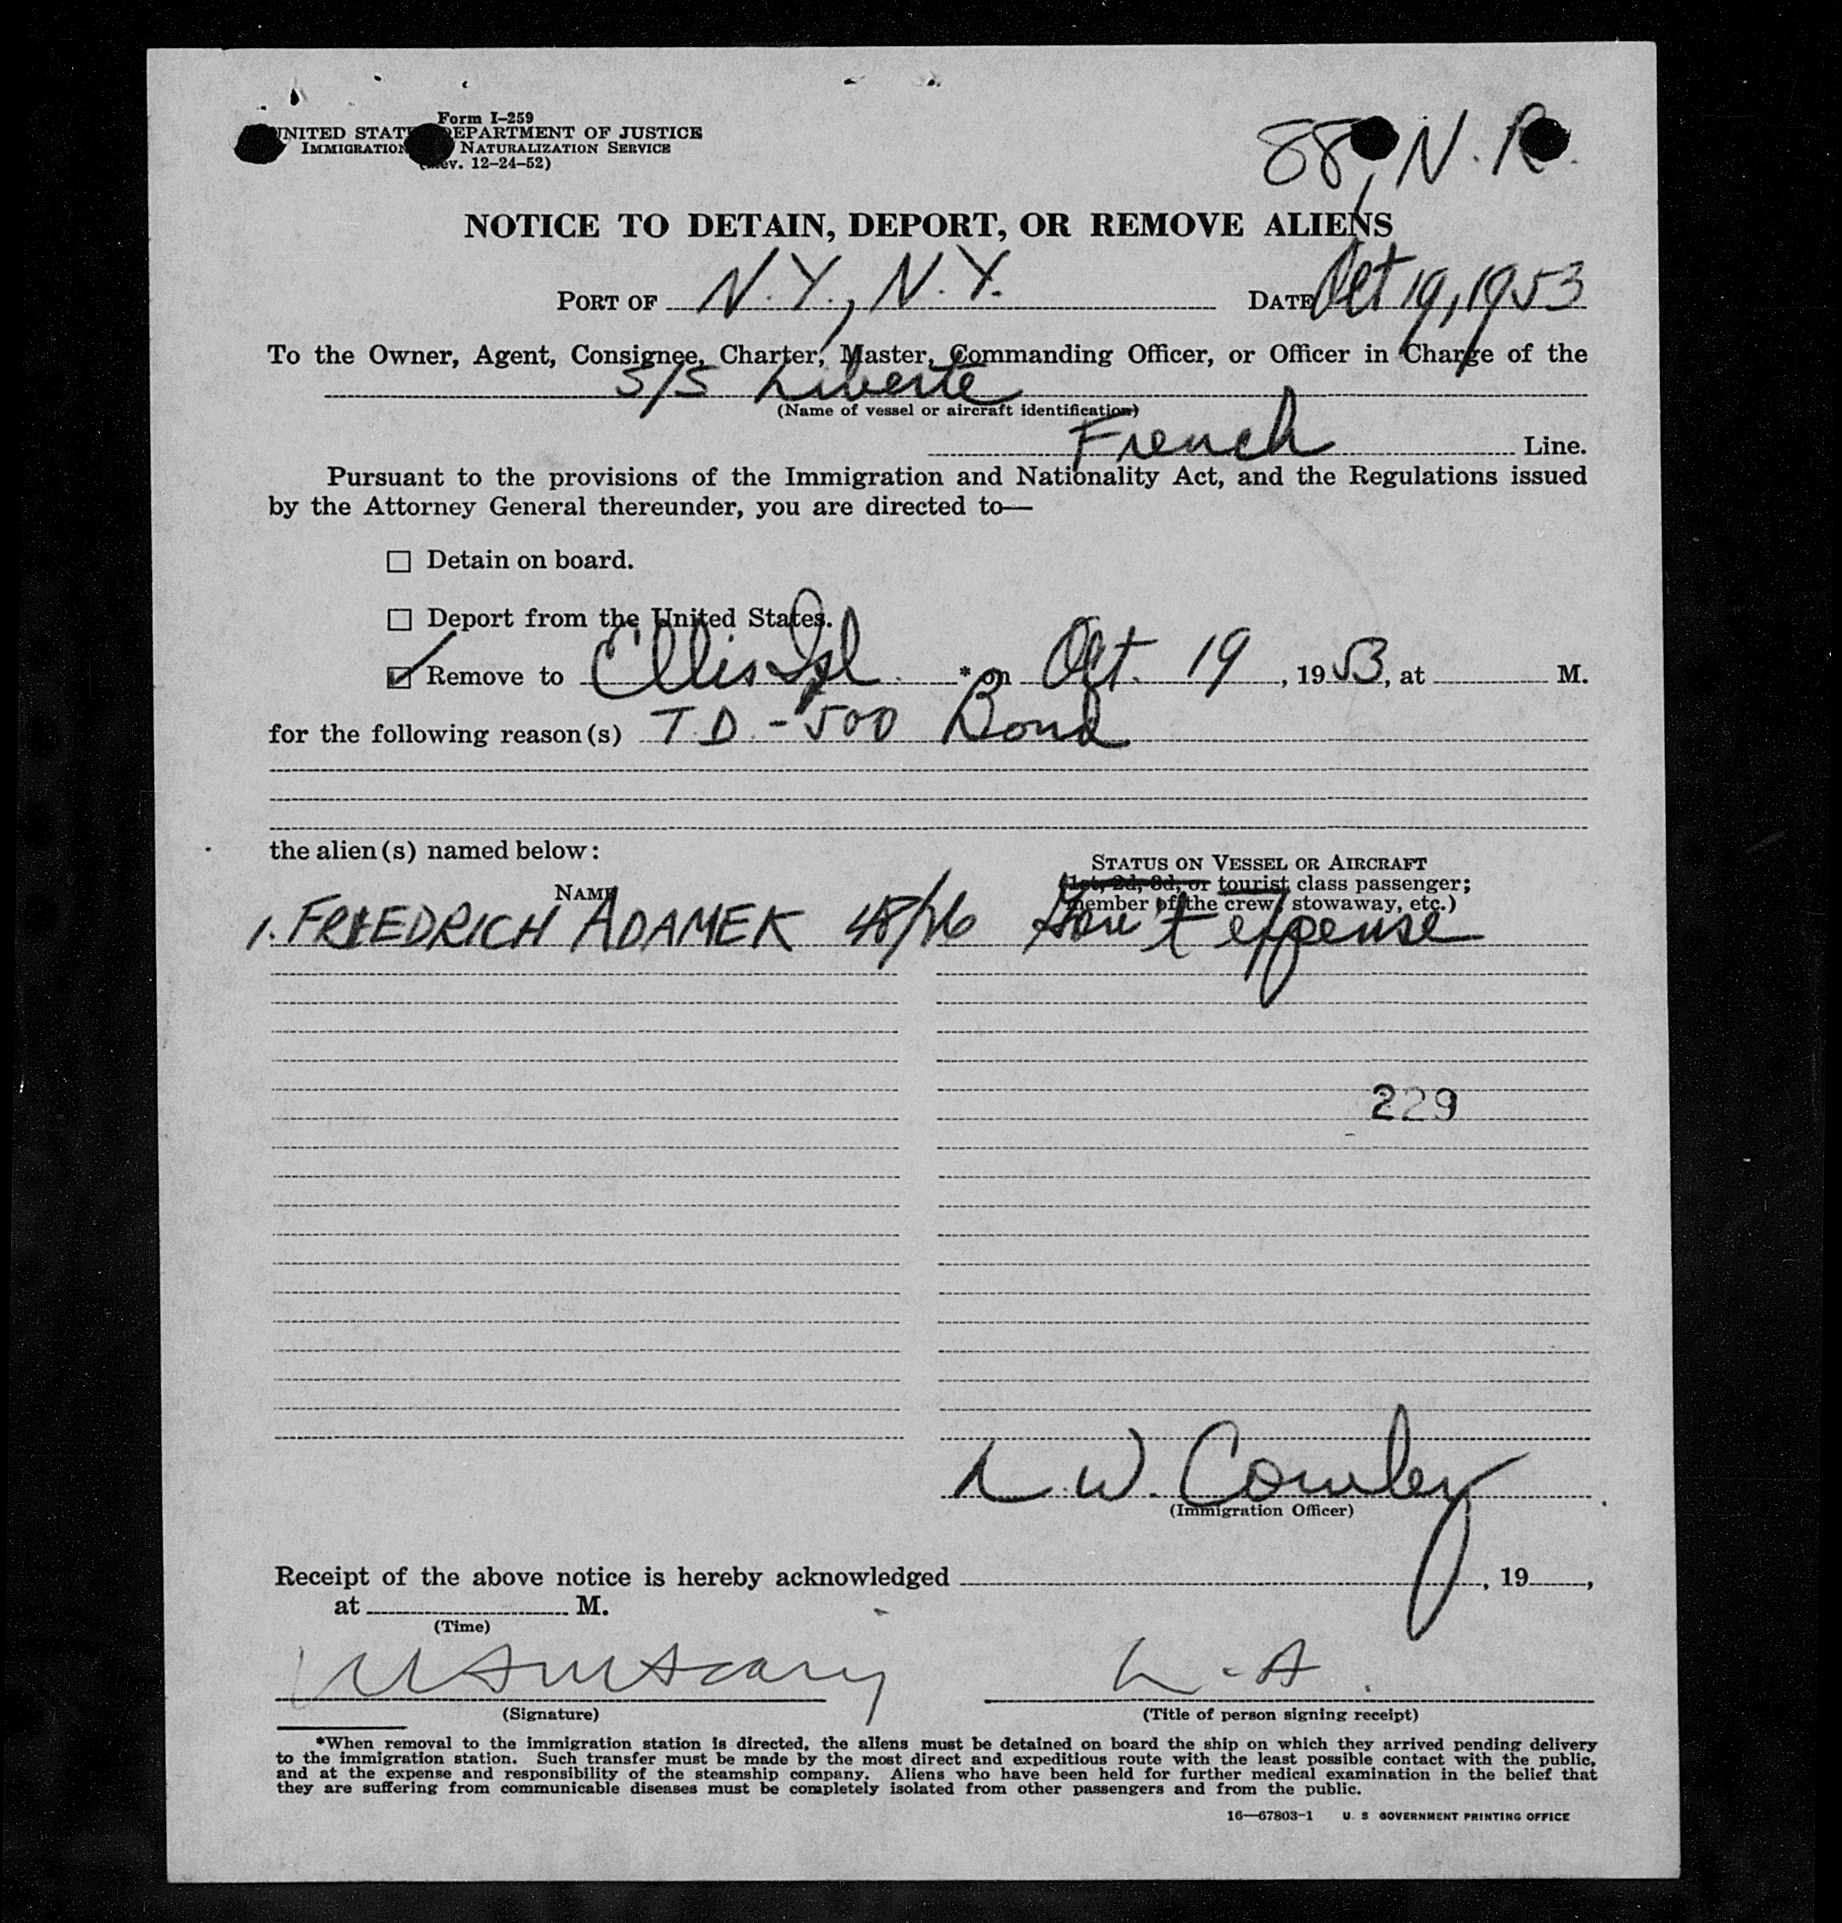 Form I-259
UNITED STATES DEPARTMENT OF JUSTICE
IMMIGRATION NATURALIZATION SERVICE
(Rev. 12-24-52)
88, N.R.
NOTICE TO DETAIN, DEPORT, OR REMOVE ALIENS
PORT OF N.Y., N.Y. DATE Oct 19, 1953
To the Owner, Agent, Consignee, Charter, Master, Commanding Officer, or Officer in Charge of the
S/S Liberte
(Name of vessel or aircraft identification)
French Line.
Pursuant to the provisions of the Immigration and Nationality Act, and the Regulations issued
by the Attorney General thereunder, you are directed to—
☐ Detain on board.
☐ Deport from the United States.
☑ Remove to Ellis Isl. *on Oct. 19, 1953, at M.
for the following reason(s) T.D. - 500 Bond
the alien(s) named below:
STATUS ON VESSEL OR AIRCRAFT
NAME
(1st, 2d, 3d, or tourist class passenger;
member of the crew, stowaway, etc.)
1. FRIEDRICH ADAMEK 48/26 Gov't expense
229
L. W. Cowley
(Immigration Officer)
Receipt of the above notice is hereby acknowledged , 19 ,
at M.
(Time)
(Signature)
(Title of person signing receipt)
*When removal to the immigration station is directed, the aliens must be detained on board the ship on which they arrived pending delivery
to the immigration station. Such transfer must be made by the most direct and expeditious route with the least possible contact with the public,
and at the expense and responsibility of the steamship company. Aliens who have been held for further medical examination in the belief that
they are suffering from communicable diseases must be completely isolated from other passengers and from the public.
16—67803-1 U. S GOVERNMENT PRINTING OFFICE